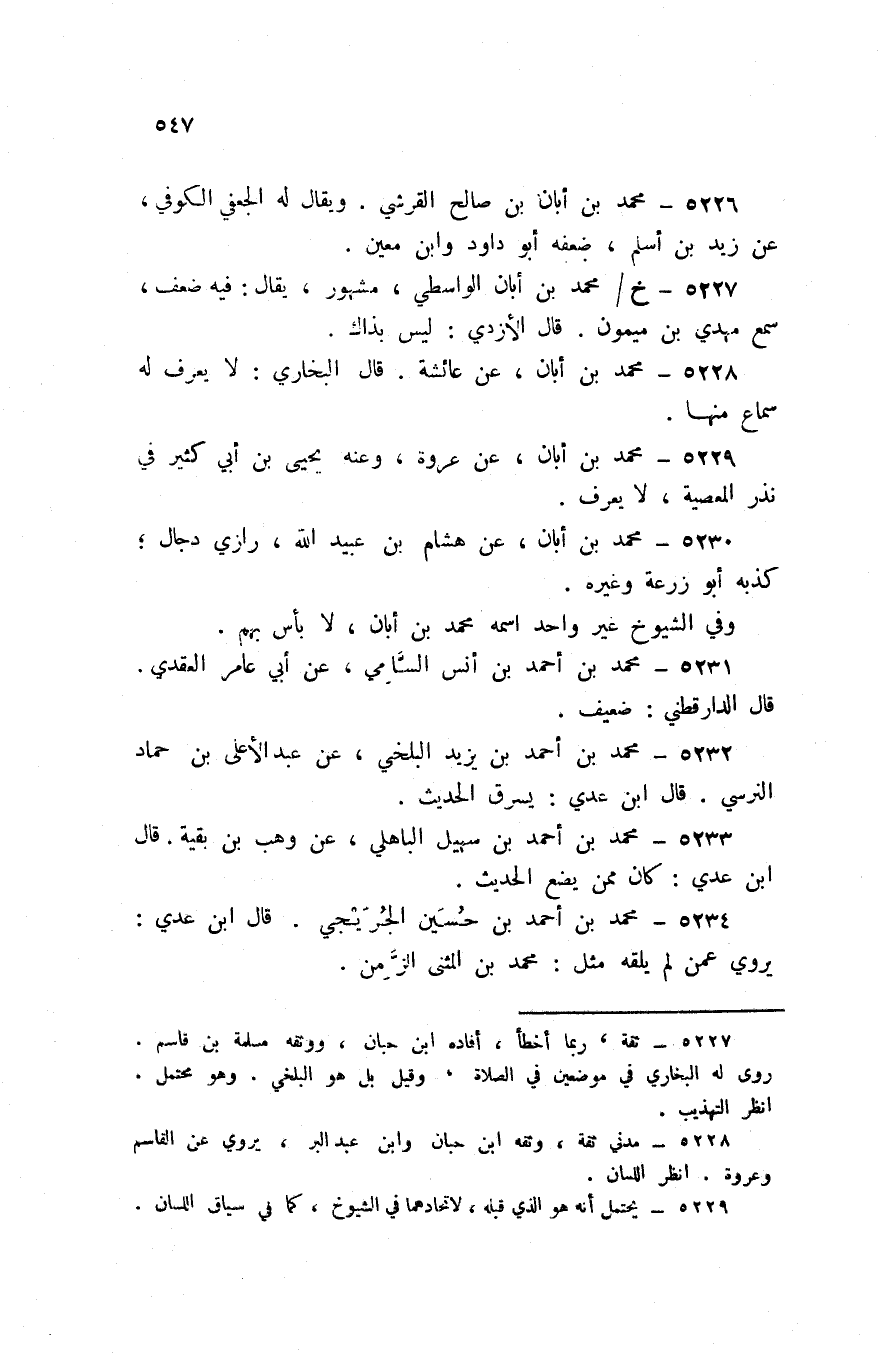 ٥٤٧
٥٢٢٦ – محمد بن أبان بن صالح القرشي . ويقال له الجعفي الكوفي ،
عن زيد بن أسلم ، ضعفه أبو داود وابن معين .
٥٢٢٧ – خ / محمد بن أبان الواسطي ، مشهور ، يقال : فيه ضعف ،
سمع مهدي بن ميمون . قال الأزدي : ليس بذاك .
٥٢٢٨ – محمد بن أبان ، عن عائشة . قال البخاري : لا يعرف له
سماع منهـا .
٥٢٢٩ – محمد بن أبان ، عن عروة ، وعنه يحيى بن أبي كثير في
نذر المعصية ، لا يعرف .
٥٢٣٠ – محمد بن أبان ، عن هشام بن عبيد الله ، رازي دجال ؛
كذبه أبو زرعة وغيره .
وفي الشيوخ غير واحد اسمه محمد بن أبان ، لا بأس بهم .
٥٢٣١ – محمد بن أحمد بن أنس السَّامِي ، عن أبي عامر العقدي .
قال الدارقطني : ضعيف .
٥٢٣٢ – محمد بن أحمد بن يزيد البلخي ، عن عبد الأعلى بن حماد
النرسي . قال ابن عدي : يسرق الحديث .
٥٢٣٣ – محمد بن أحمد بن سهيل الباهلي ، عن وهب بن بقية . قال
ابن عدي : كان ممن يضع الحديث .
٥٢٣٤ – محمد بن أحمد بن حُسَين الجُرَيْجي . قال ابن عدي :
يروي عمن لم يلقه مثل : محمد بن المثنى الزَّمِن .
٥٢٢٧ – ثقة ، ربما أخطأ ، أفاده ابن حبان ، ووثقه مسلمة بن قاسم .
روى له البخاري في موضعين في الصلاة ، وقيل بل هو البلخي . وهو محتمل .
انظر التهذيب .
٥٢٢٨ – مدني ثقة ، وثقه ابن حبان وابن عبد البر ، يروي عن القاسم
وعروة . انظر اللسان .
٥٢٢٩ – يحتمل أنه هو الذي قبله ، لاتحادهما في الشيوخ ، كما في سياق اللسان .